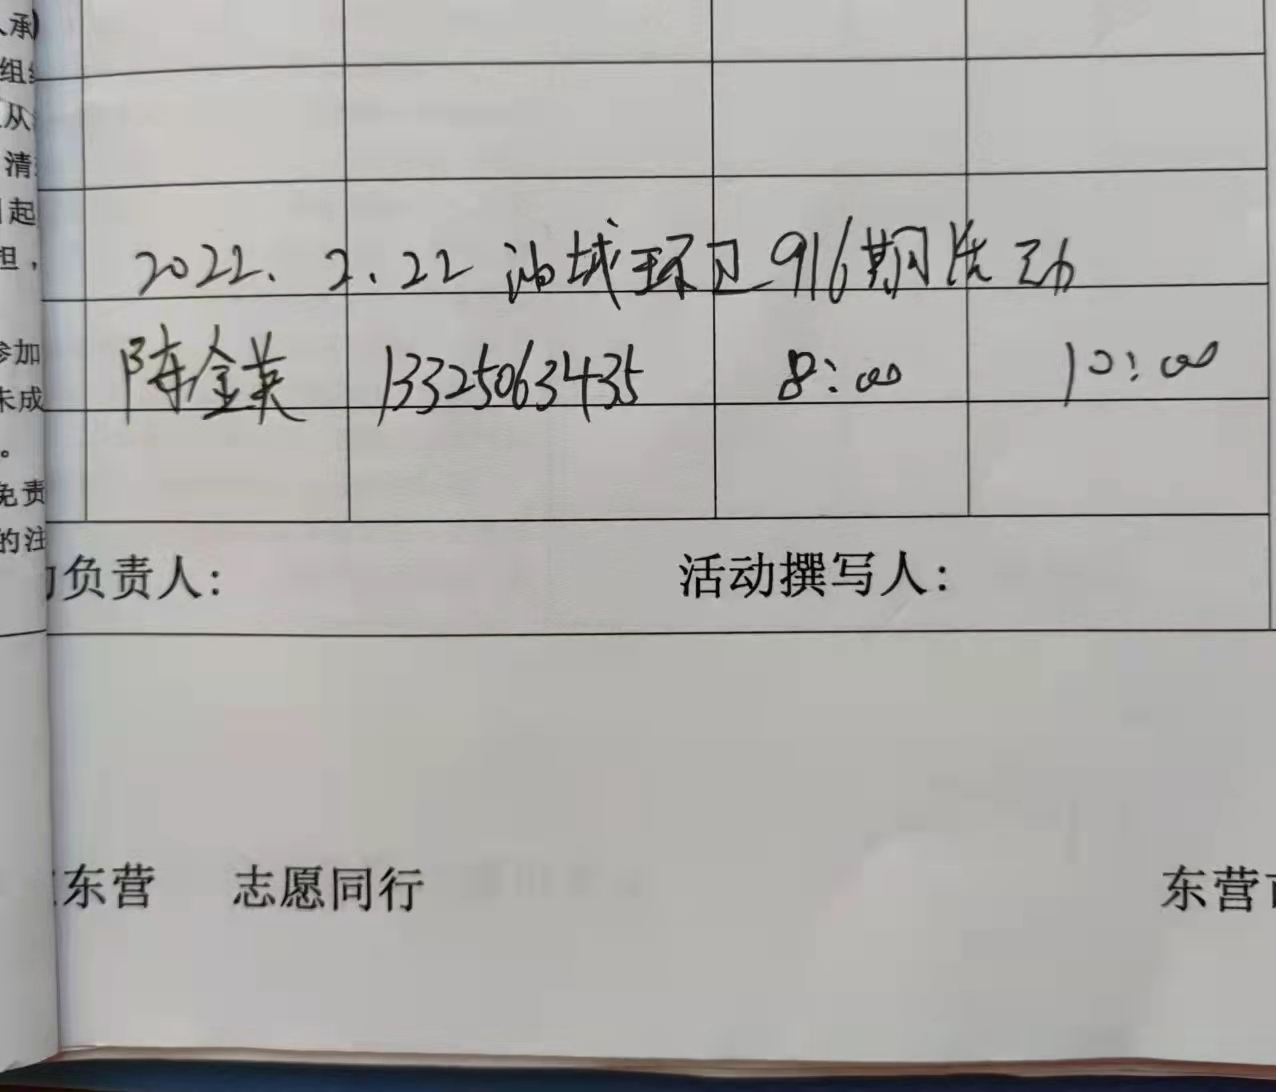 人承
组
从
清
起
担，
2022.2.22 油城环卫916期活动
参加
陈金英 13325063435 8:00 10:00
未成
。
免责
的注
负责人： 活动撰写人：
东营 志愿同行 东营市